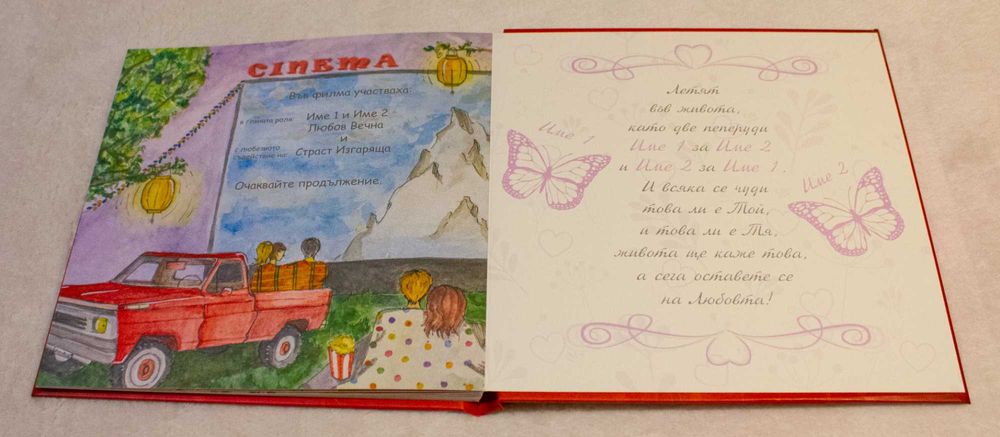 CINEMA
Във филма участваха:
в главната роля: Име 1 и Име 2
Любов Вечна
и
с любезното
съдействие на: Страст Изгаряща
Очаквайте продължение.
Летят
във живота,
като две пеперуди
Име 1 за Име 2
и Име 2 за Име 1.
И всяка се чуди
това ли е Той,
и това ли е Тя,
живота ще каже това,
а сега оставете се
на Любовта!
Име 1
Име 2